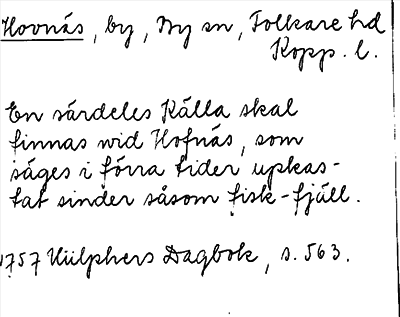 Hovnäs, by, By sn, Folkare hd
Kopp. l.
En särdeles Källa skal
finnas wid Hofnäs, som
säges i förra tider upkas-
tat sinder såsom fisk-fjäll.
1757 Hülphers Dagbok, s. 563.